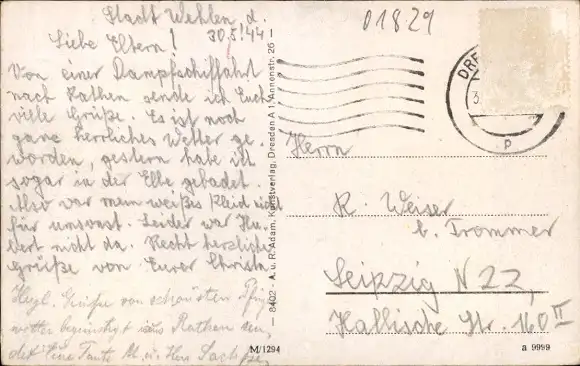 Stadt Wehlen d.
30.5.44
Liebe Eltern!
Von einer Dampfschiffahrt
nach Rathen sende ich Euch
viele Grüße. Es ist noch
ganz herrliches Wetter ge-
worden, gestern habe ich
sogar in der Elbe gebadet.
Also war mein weißes Kleid nicht
für umsonst. Leider war Hu-
bert nicht da. Recht herzliche
Grüße von Eurer Christa
Herzl. Grüße von schönsten
wetter begünstigt aus Rathen
Tante M. u.
01829
DRE
P
Herrn
K. Weiser
b. Trommer
Leipzig N 22,
Hallische Str. 160 II
— 8402 · A. u. R. Adam, Kunstverlag, Dresden A 1, Annenstr. 25 I
M/1294
a 9999